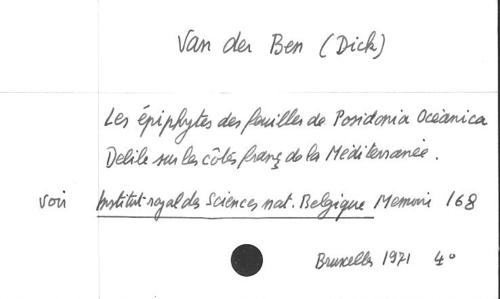 Van der Ben (Dick)
Les épiphytes des feuilles de Posidonia Oceanica
Delile sur les côtes franç de la Méditerranée.
voir Institut royal des Sciences nat. Belgique Memoire 168
Bruxelles 1971 4°